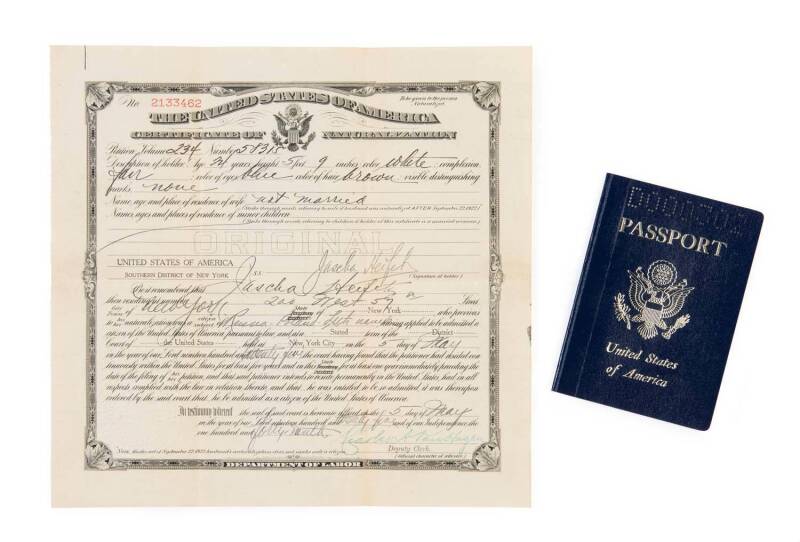 No. 2133462
To be given to the person
Naturalized.
THE UNITED STATES OF AMERICA
CERTIFICATE OF NATURALIZATION
Petition, Volume 234 Number 58315
Description of holder: Age, 24 years; height, 5 feet, 9 inches; color, white; complexion,
fair; color of eyes, blue; color of hair, brown; visible distinguishing
marks, none
Name, age and place of residence of wife not married
Names, ages and places of residence of minor children
ORIGINAL
UNITED STATES OF AMERICA
SOUTHERN DISTRICT OF NEW YORK S.S.
Jascha Heifetz
(Signature of holder)
Be it remembered that Jascha Heifetz
then residing at number 200 West 57 Street
City New York State New York, who previous
to his naturalization was a citizen of Russia, having applied to be admitted a
citizen of the United States of America, pursuant to law, and at a Stated term of the District
Court of the United States held at New York City on the 5 day of May
in the year of our Lord nineteen hundred and twenty five the court having found that the petitioner had resided con-
tinuously within the United States for at least five years and in this State for at least one year immediately preceding the
date of the filing of his petition, and that said petitioner intends to reside permanently in the United States, had in all
respects complied with the law in relation thereto, and that he was entitled to be so admitted, it was thereupon
ordered by the said court that he be admitted as a citizen of the United States of America.
In testimony whereof the seal of said court is hereunto affixed on the 5 day of May
in the year of our Lord nineteen hundred and twenty five and of our Independence the
one hundred and forty ninth
Deputy Clerk.
(Official character of attestor.)
DEPARTMENT OF LABOR
PASSPORT
United States
of America